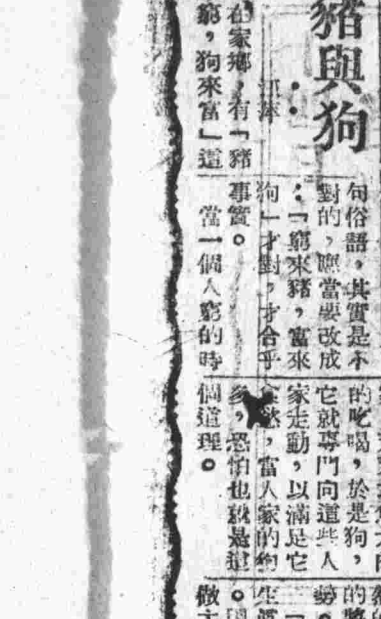 豬與狗
在家鄉，有「豬
窮，狗來富」這
句俗語，其實是不
對的，應當要改成
：「窮來豬，富來
狗」才對，才合乎
事實。
當一個人窮的時
的吃喝，於是狗，
它就專門向這些人
家走動，以滿足它
慾，富人家的
多，恐怕也就是這
個道理。